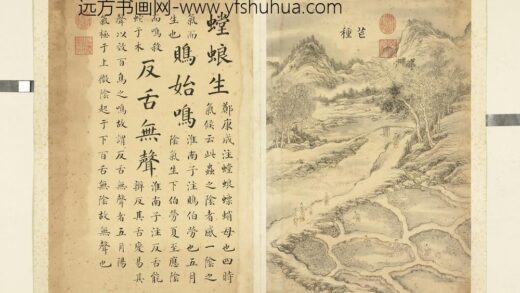 远方书画网-www.yfshuhua.com
芒
種
螳螂生
鄭康成注螳螂螵蛸母也四時
氣候云此蟲之陰者感一陰之
氣而
生也
鵙始鳴
淮南子注鵙伯勞也五月
陰氣生下伯勞夏至應陰
而鳴殺
蛇于木
反舌無聲
淮南子注反舌能
辦反其舌變易其
聲以效百鳥之鳴故謂反舌無聲者五月陽
氣極于上微陰起于下百舌無陰故無聲也